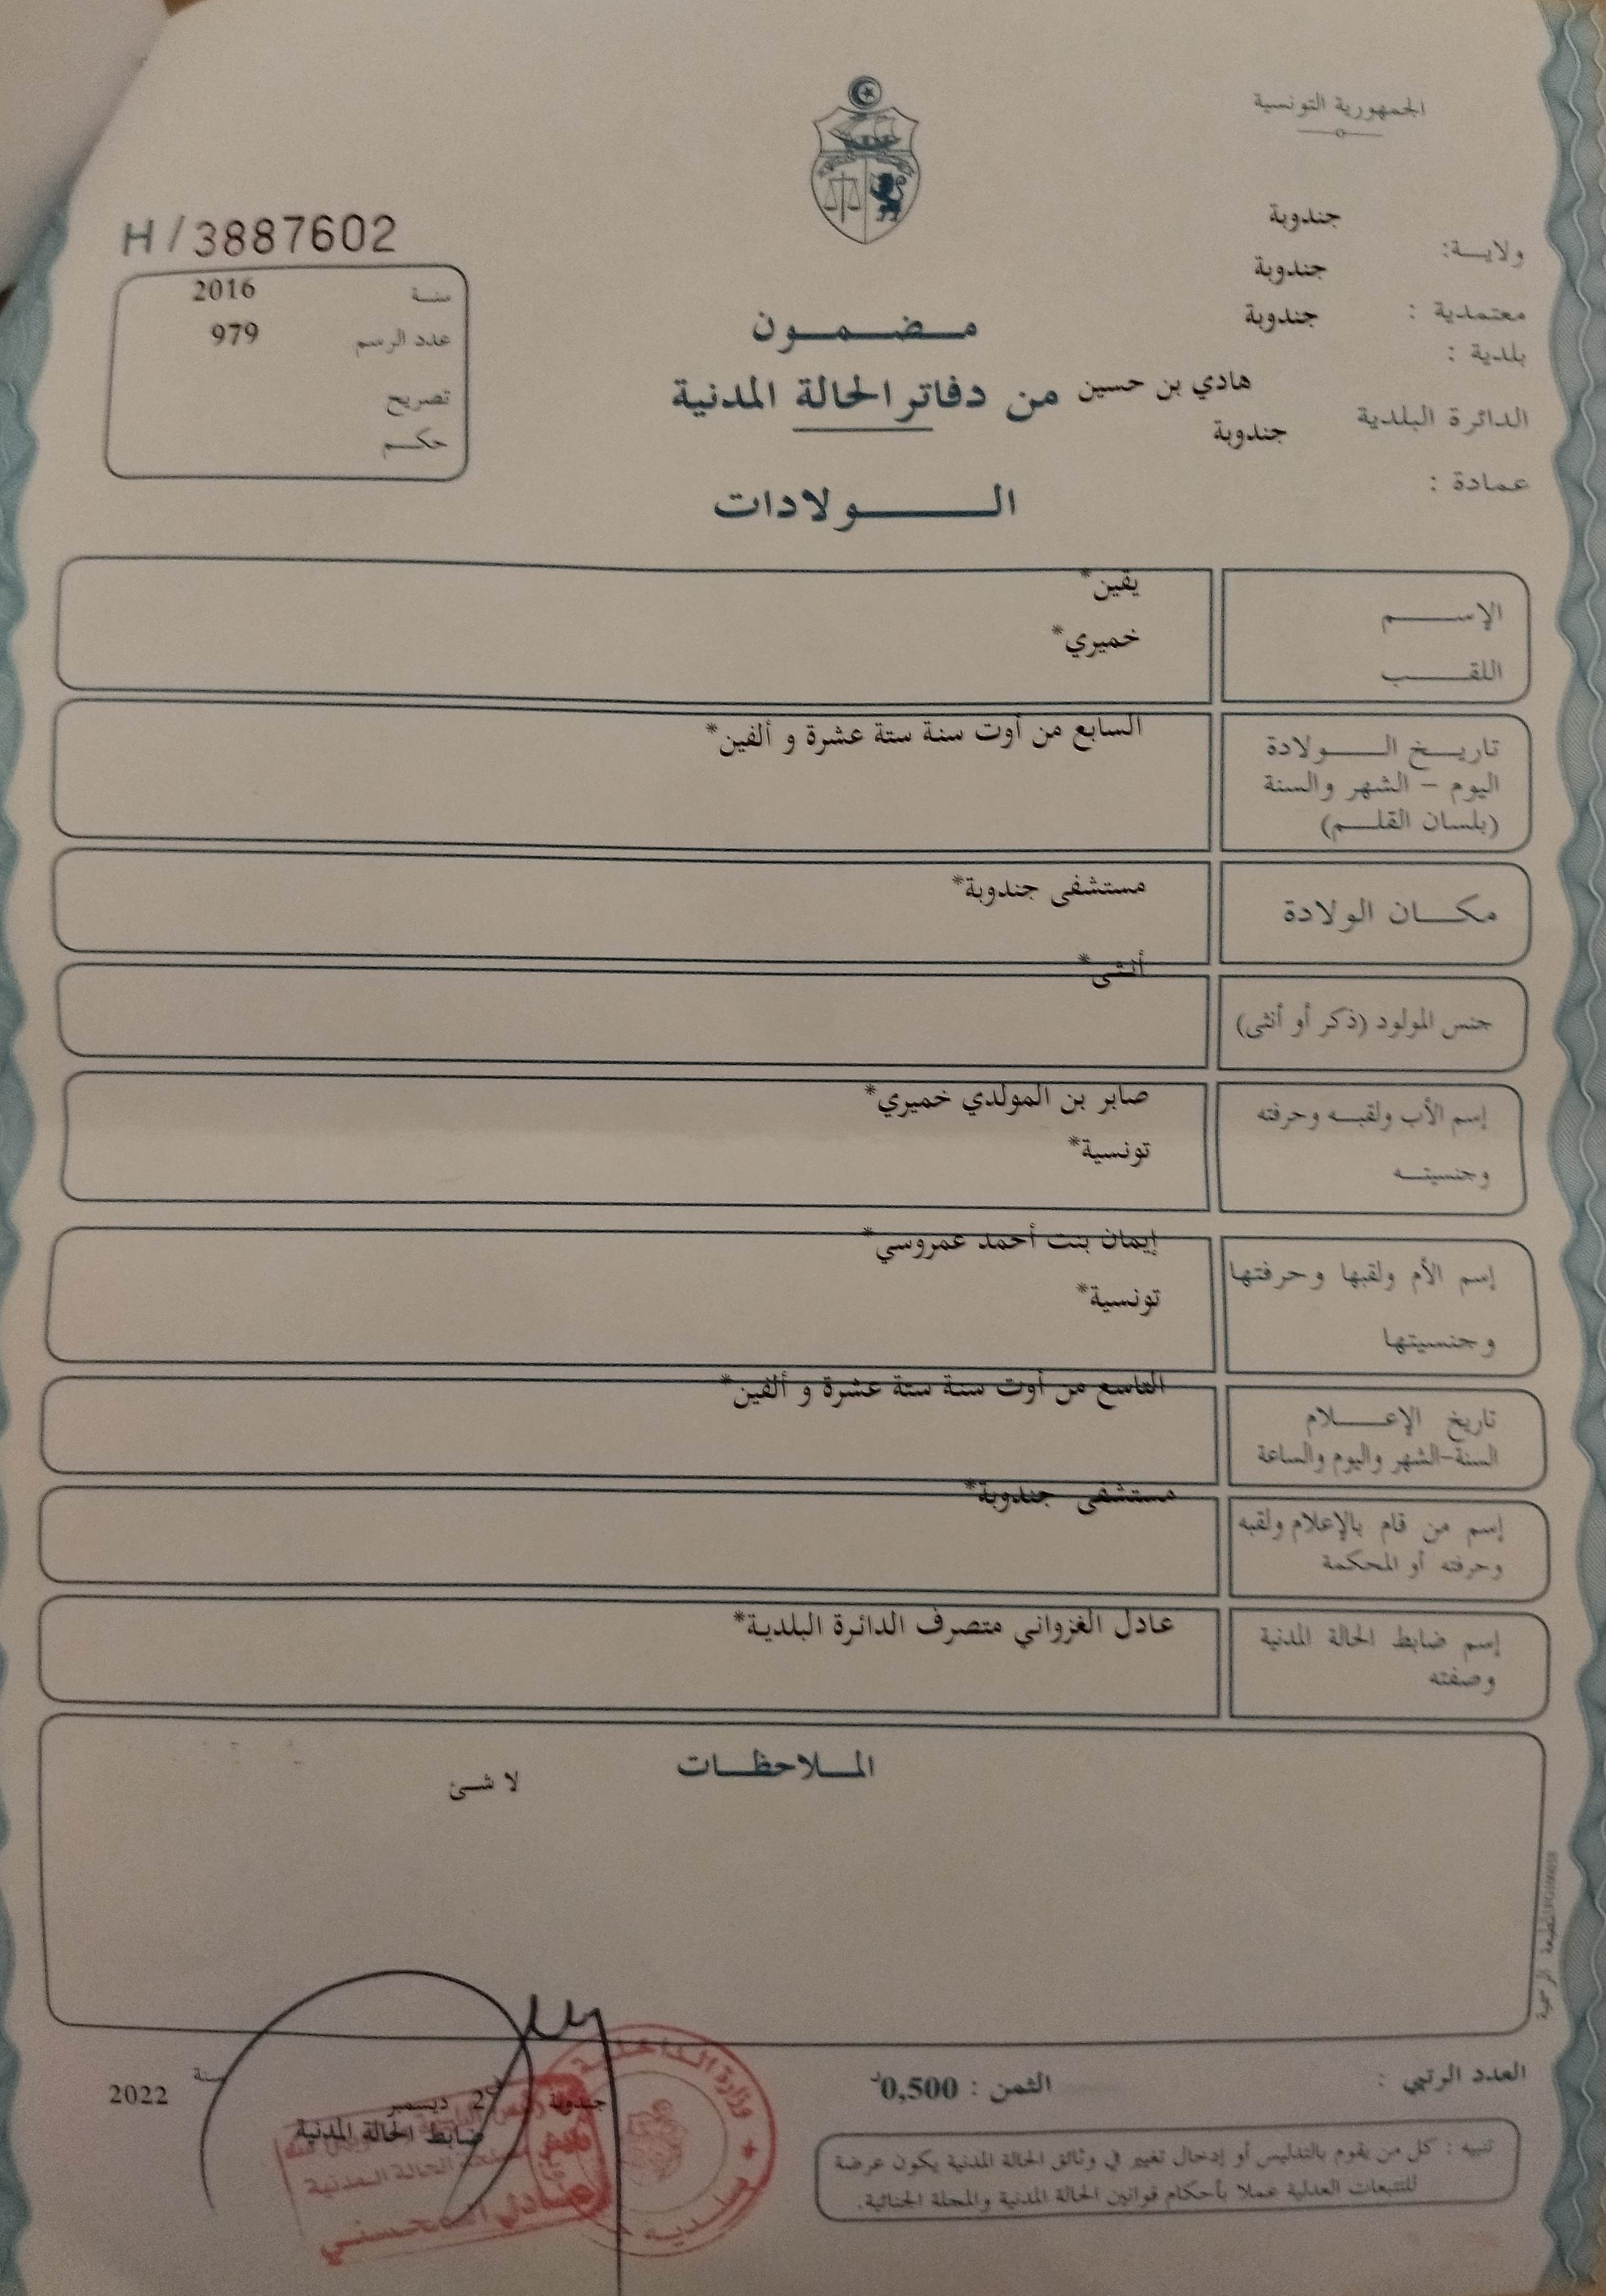 الجمهورية التونسية
ولايـــة: جندوبة
معتمدية : جندوبة
بلدية : جندوبة
الدائرة البلدية هادي بن حسين
عمادة : جندوبة
H/3887602
سنة 2016
عدد الرسم 979
تصريح
حكم
مضمون
من دفاتر الحالة المدنية
الولادات
الإسم يقين*
اللقب خميري*
تاريخ الولادة السابع من أوت سنة ستة عشرة و ألفين*
اليوم - الشهر والسنة
(بلسان القلم)
مكان الولادة مستشفى جندوبة*
جنس المولود (ذكر أو أنثى) أنثى*
إسم الأب ولقبه وحرفته صابر بن المولدي خميري*
وجنسيته تونسية*
إسم الأم ولقبها وحرفتها إيمان بنت أحمد عمروسي*
وجنسيتها تونسية*
تاريخ الإعلام التاسع من أوت سنة ستة عشرة و ألفين*
السنة-الشهر واليوم والساعة
إسم من قام بالإعلام ولقبه مستشفى جندوبة*
وحرفته أو المحكمة
إسم ضابط الحالة المدنية عادل الغزواني متصرف الدائرة البلدية*
وصفته
الملاحظات
لا شئ
المطبعة الرسمية
العدد الرتبي :
الثمن : 0,500د
جندوبة ديسمبر سنة 2022
ضابط الحالة المدنية
وزارة الداخلية
الحالة المدنية
تنبيه : كل من يقوم بالتدليس أو إدخال تغيير في وثائق الحالة المدنية يكون عرضة
للتتبعات العدلية عملا بأحكام قوانين الحالة المدنية والمجلة الجنائية.